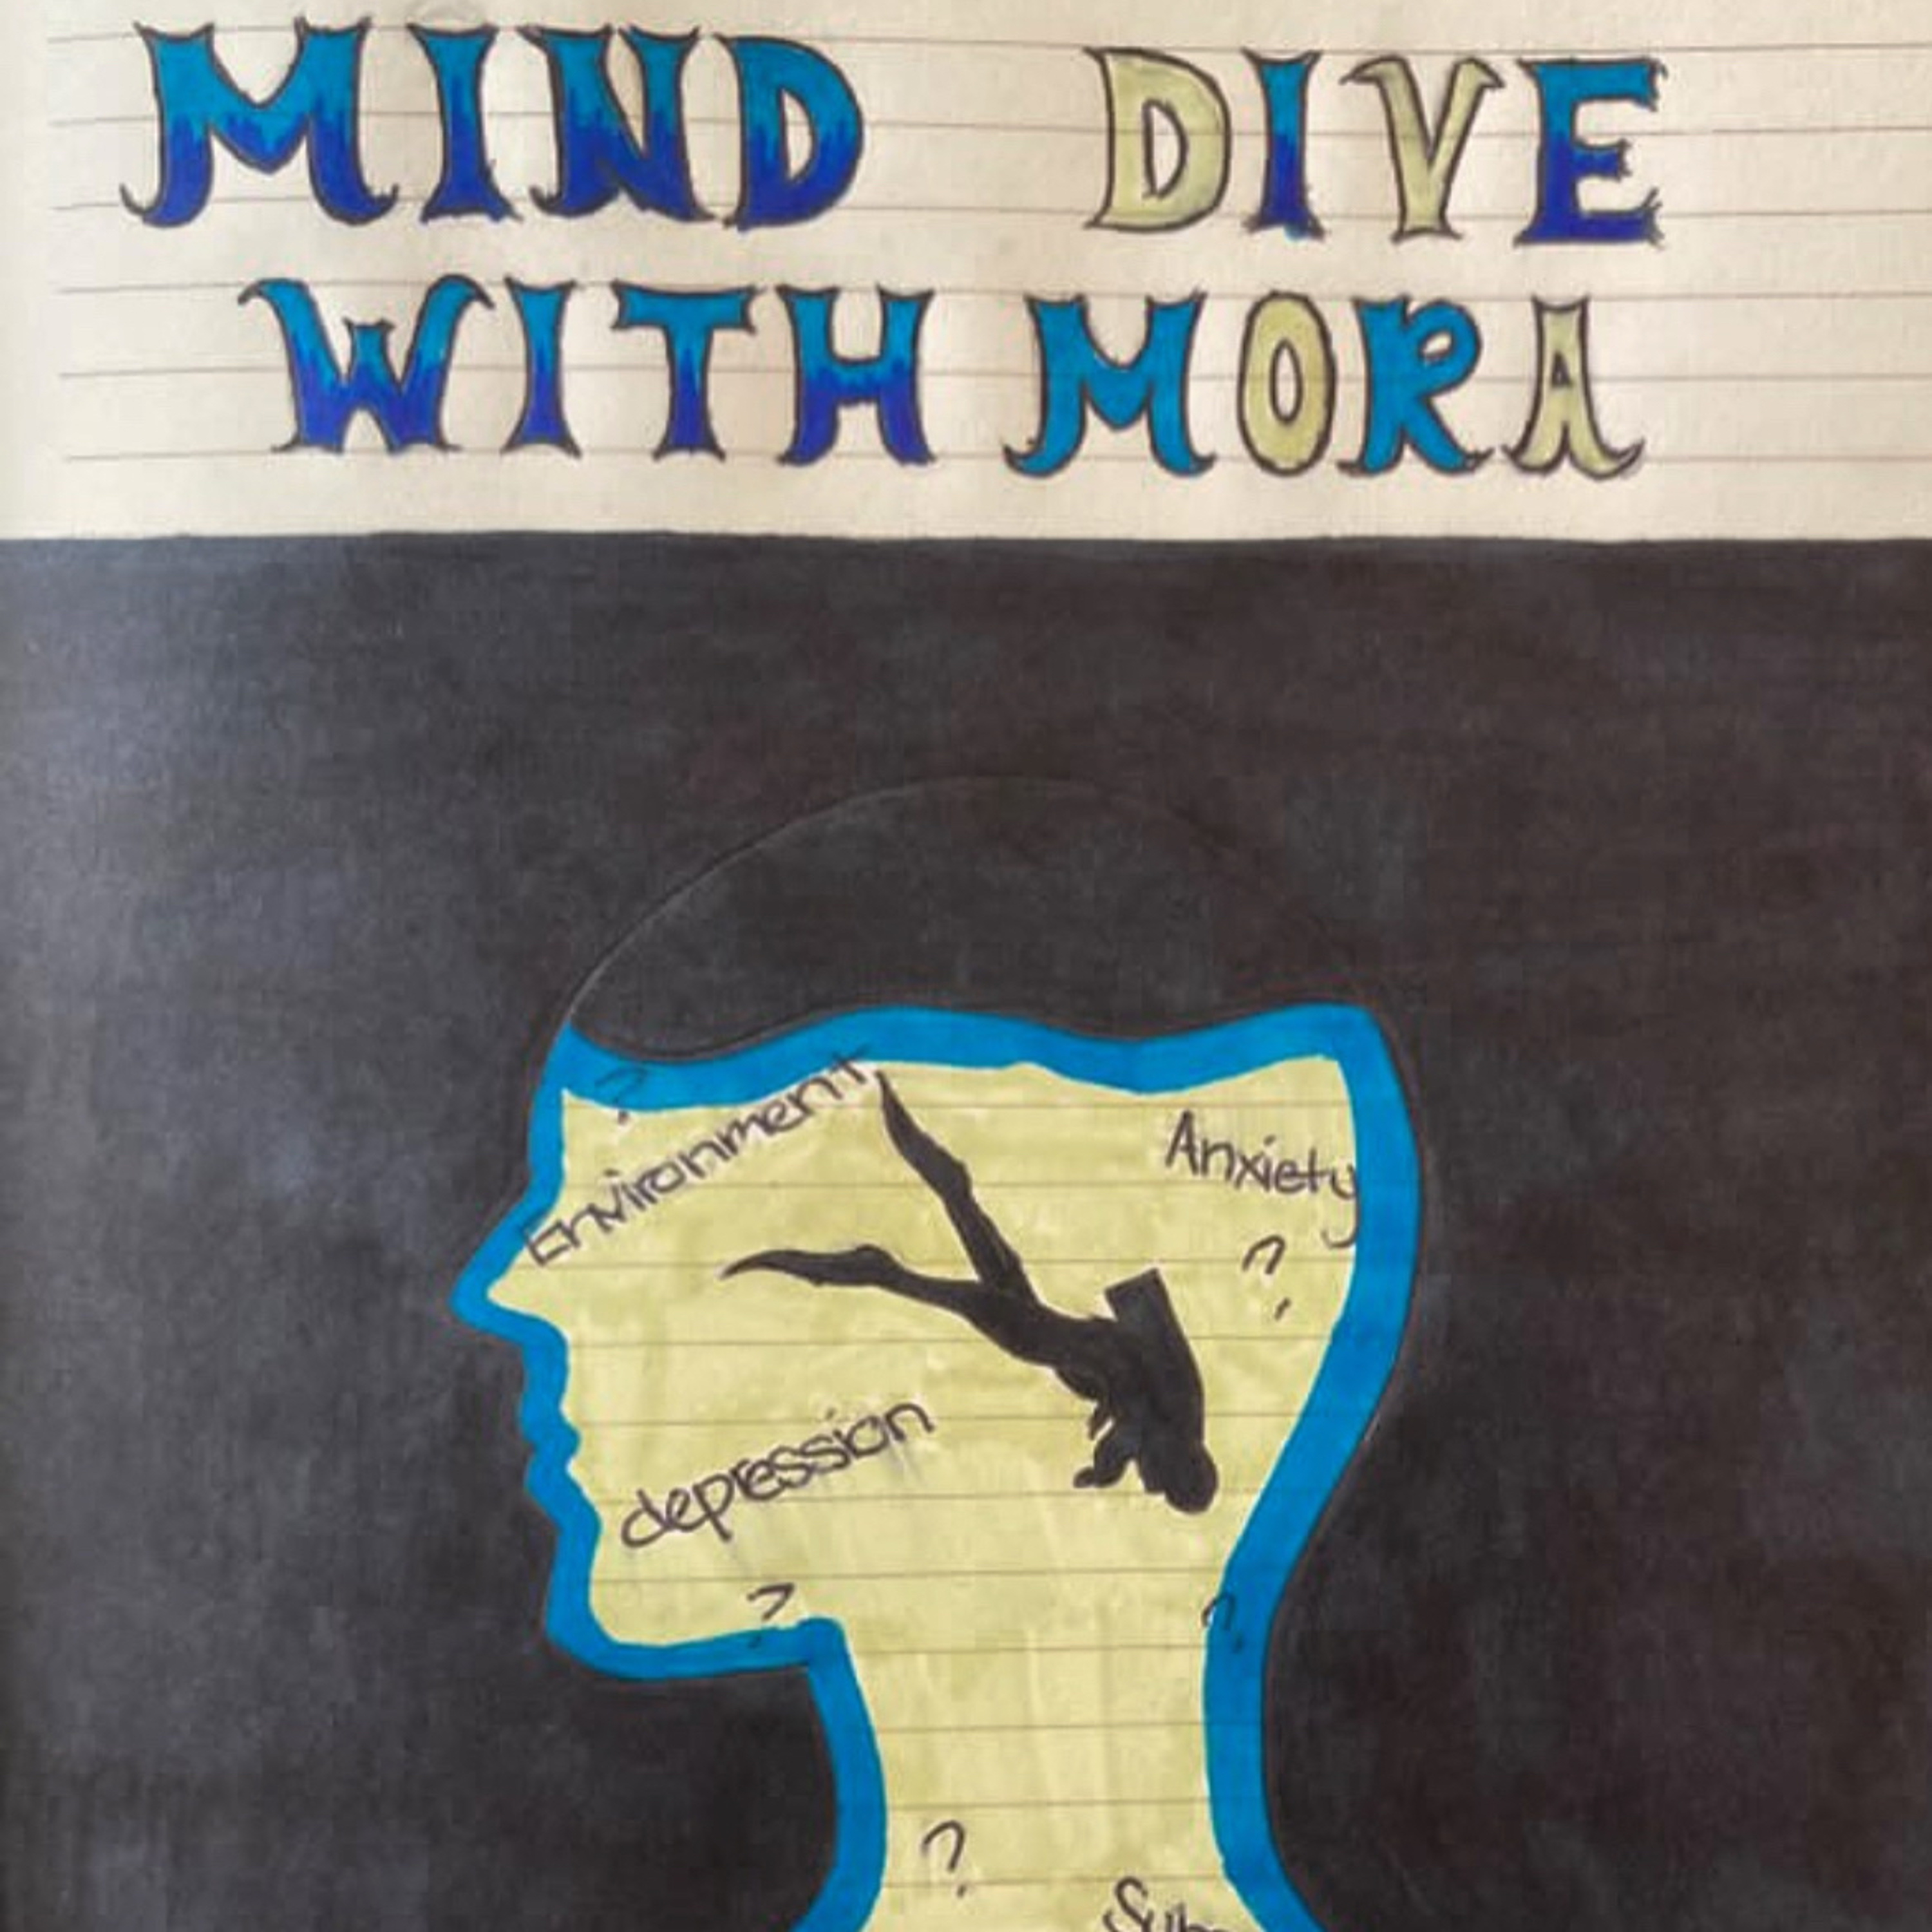 MIND DIVE
WITH MORA
?
Environment
Anxiety
?
depression
?
?
?